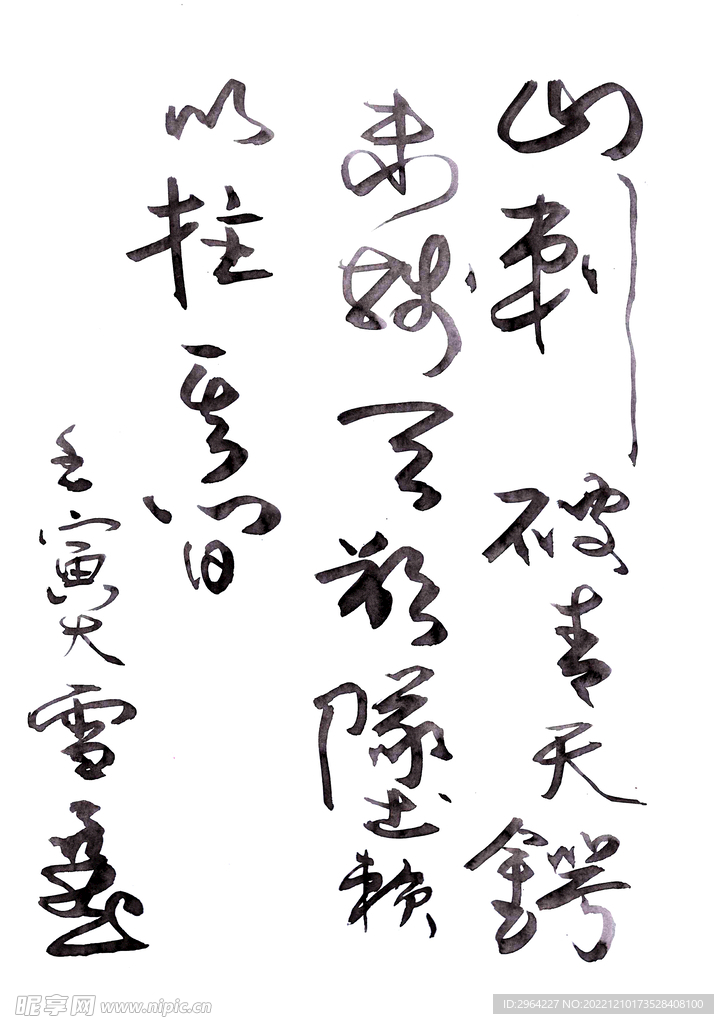 山刺破青天鍔
未殘天欲墜賴
以柱其間
壬寅大雪
昵享网 www.nipic.cn
ID:2964227 NO:20221210173528408100